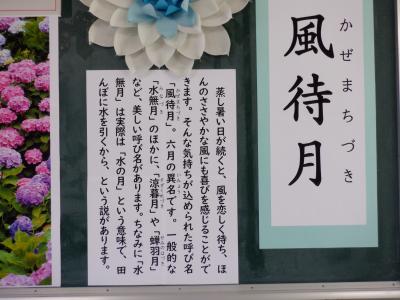 風待月
かぜまちづき
蒸し暑い日が続くと、風を恋しく待ち、ほ
んのささやかな風にも喜びを感じることがで
きます。そんな気持ちが込められた呼び名
「風待月」。六月の異名です。一般的な
「水無月」のほかに、「涼暮月」や「蝉羽月」
など、美しい呼び名があります。ちなみに「水
無月」は実際は「水の月」という意味で、田
んぼに水を引くから、という説があります。